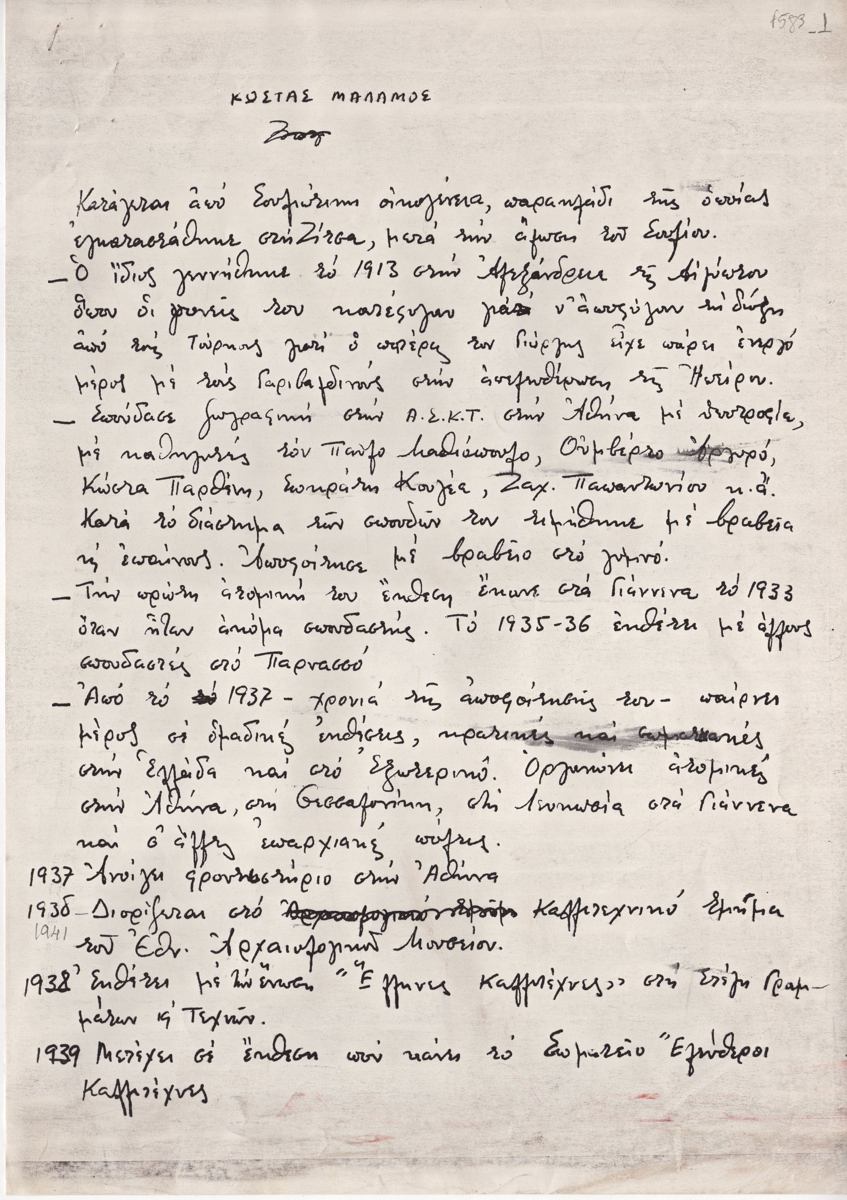 1583_1
ΚΩΣΤΑΣ ΜΑΛΑΜΟΣ
Κατάγεται ἀπό Σουλιώτικη οἰκογένεια, παρακλάδι τῆς ὁποίας
ἐγκαταστάθηκε στή Ζίτσα, μετά τήν ἅλωση τοῦ Σουλίου.
— Ὁ ἴδιος γεννήθηκε τό 1913 στήν Ἀλεξάνδρεια τῆς Αἰγύπτου
ὅπου οἱ γονεῖς του κατέφυγαν γιά ν' ἀποφύγουν τή δίωξη
ἀπό τούς Τούρκους γιατί ὁ πατέρας του Γιώργης εἶχε πάρει ἐνεργό
μέρος μέ τούς Γαριβαλδινούς στήν ἀπελευθέρωση τῆς Ἠπείρου.
— Σπούδασε ζωγραφική στήν Α.Σ.Κ.Τ. στήν Ἀθήνα μέ ὑποτροφία,
μέ καθηγητές τόν Παῦλο Μαθιόπουλο, Οὐμβέρτο Ἀργυρό,
Κώστα Παρθένη, Σωκράτη Κουγέα, Ζαχ. Παπαντωνίου κ.ἄ.
Κατά τό διάστημα τῶν σπουδῶν του τιμήθηκε μέ βραβεῖα
κ' ἐπαίνους. Ἀποφοίτησε μέ βραβεῖο στό γυμνό.
— Τήν πρώτη ἀτομική του ἔκθεση ἔκανε στά Γιάννενα τό 1933
ὅταν ἦταν ἀκόμα σπουδαστής. Τό 1935-36 ἐκθέτει μέ ἄλλους
σπουδαστές στό Παρνασσό
— Ἀπό τό 1937 - χρονιά τῆς ἀποφοίτησής του - παίρνει
μέρος σέ ὁμαδικές ἐκθέσεις, κρατικές καί σωματειακές
στήν Ἑλλάδα καί στό Ἐξωτερικό. Ὀργανώνει ἀτομικές
στήν Ἀθήνα, στή Θεσσαλονίκη, στή Λευκωσία στά Γιάννενα
καί σ' ἄλλες ἐπαρχιακές πόλεις.
1937 Ἀνοίγει φροντιστήριο στήν Ἀθήνα
1938 - Διορίζεται στό Καλλιτεχνικό τμῆμα
1941
τοῦ Ἐθν. Ἀρχαιολογικοῦ Μουσείου.
1938 Ἐκθέτει μέ τήν ἕνωση "Ἕλληνες Καλλιτέχνες» στή Στέγη Γραμ-
μάτων κ' Τεχνῶν.
1939 Μετέχει σέ ἔκθεση πού κάνει τό Σωματεῖο "Ἐλεύθεροι
Καλλιτέχνες